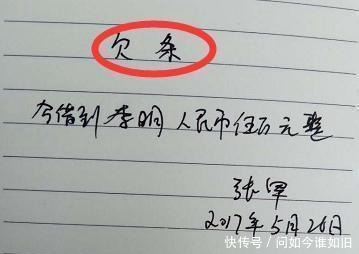 欠条
今借到李明人民币伍万元整
张军
2017年5月26日
快传号/问如今谁如旧